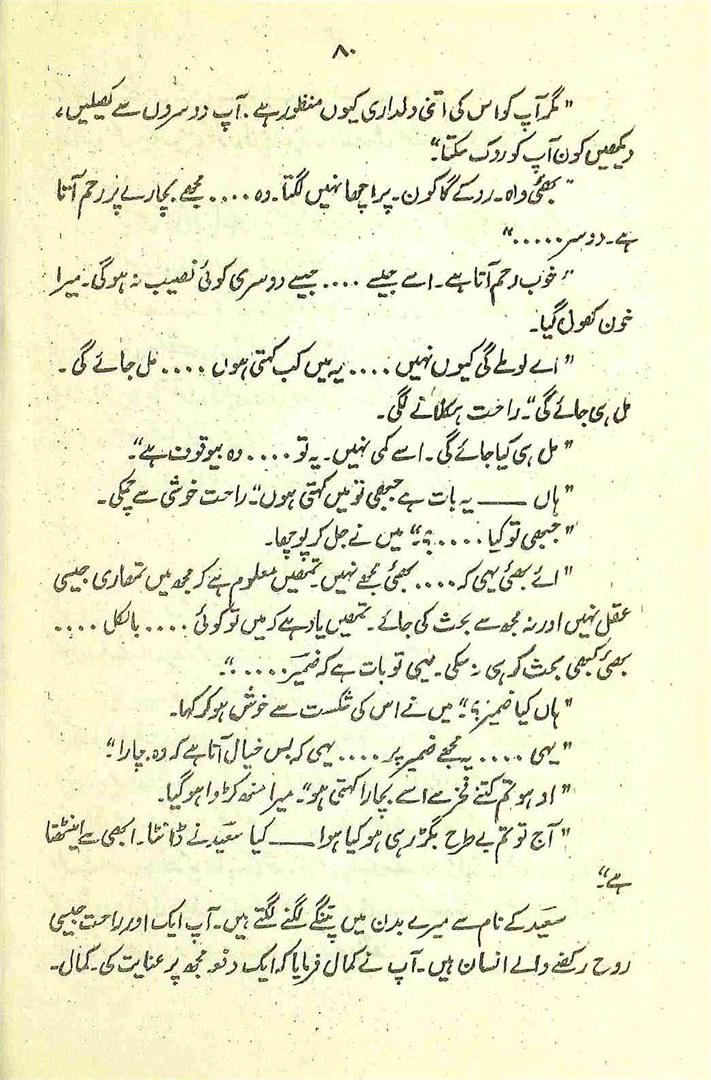 ۸۰
"مگر آپ کو اس کی اتنی دلداری کیوں منظور ہے۔ آپ دوسروں سے کھیلیں،
دیکھیں کون آپ کو روک سکتا۔"
"بھئی واہ۔ روکے گا کون۔ پر اچھا نہیں لگتا۔ وہ .... مجھے بچارے پر رحم آتا
ہے۔ دوسر ....."
"خوب رحم آتا ہے۔ اسے جیسے .... جیسے دوسری کوئی نصیب نہ ہوگی۔ میرا
خون کھول گیا۔
"اے لو ملے گی کیوں نہیں .... یہ میں کب کہتی ہوں .... مل جائے گی۔
مل ہی جائے گی"۔ راحت ہکلانے لگی۔
"مل ہی کیا جائے گی۔ اسے کمی نہیں۔ یہ تو .... وہ بیوقوف ہے"۔
"ہاں ـــــ یہ بات ہے جبھی تو میں کہتی ہوں"۔ راحت خوشی سے چمکی۔
"جبھی تو کیا ....؟" میں نے جل کر پوچھا۔
"ائے بھئی یہی کہ .... بھئی مجھے نہیں۔ تمھیں معلوم ہے کہ مجھ میں تمھاری جیسی
عقل نہیں اور نہ مجھ سے بحث کی جائے۔ تمھیں یاد ہے کہ میں تو کوئی .... بالکل ....
بھئی کبھی بحث کر ہی نہ سکی۔ یہی تو بات ہے کہ ضمیر ....."۔
"ہاں کیا ضمیر؟" میں نے اس کی شکست سے خوش ہو کر کہا۔
"یہی .... یہ مجھے ضمیر پر .... یہی کہ بس خیال آتا ہے کہ وہ بچارا"۔
"اوہو تم کتنے فخر سے اسے بچارا کہتی ہو"۔ میرا منھ کڑوا ہو گیا۔
"آج تو تم بے طرح بگڑ رہی ہو کیا ہوا ـــــ کیا سعید نے ڈانٹا۔ ابھی سے اینٹھتا
ہے"۔
سعید کے نام سے میرے بدن میں پتنگے لگنے لگتے ہیں۔ آپ ایک اور راحت جیسی
روح رکھنے والے انسان ہیں۔ آپ نے کمال فرمایا کہ ایک دفعہ مجھ پر عنایت کی۔ کمال۔